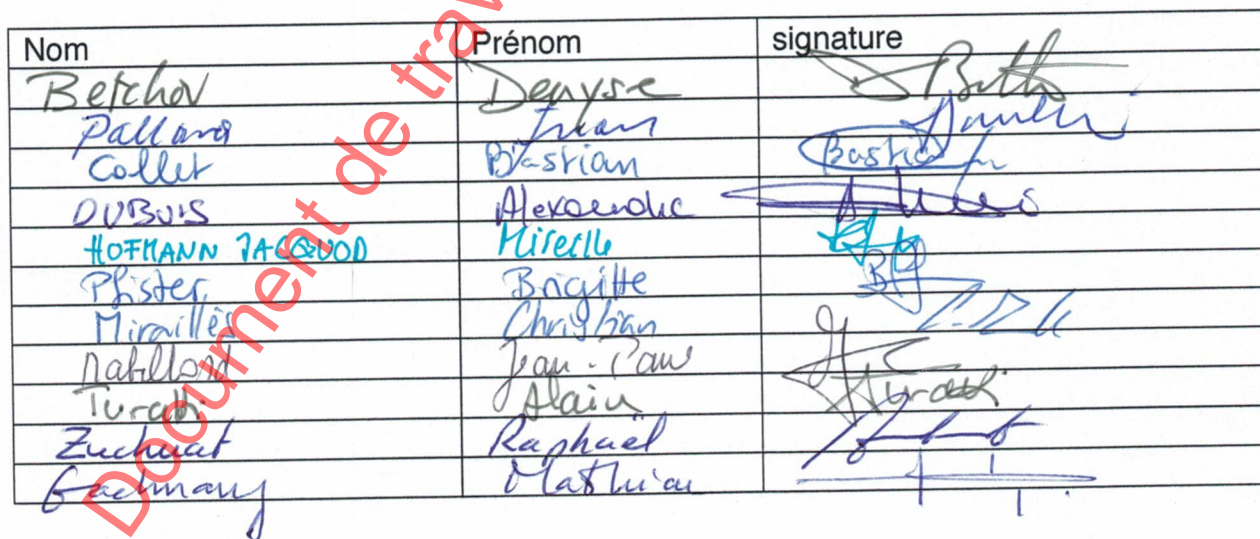 Nom Prénom signature
Betchov Denyse
Pallara Ivan
Collet Bastian Bastian
DUBUIS Alexandre
HOFMANN JACQUOD Mireille
Pfister Brigitte
Mirailles Christian
Nabillard Jean-Paul
Turatti Alain Turatti
Zuchuat Raphaël
Gachnang Mathieu
Document de trav